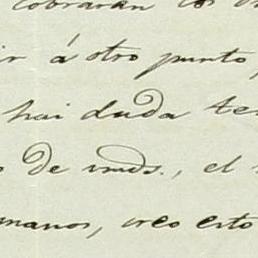 cobraran los
ir á otro punto,
hai duda te
o de vmds., el
manos, creo esto